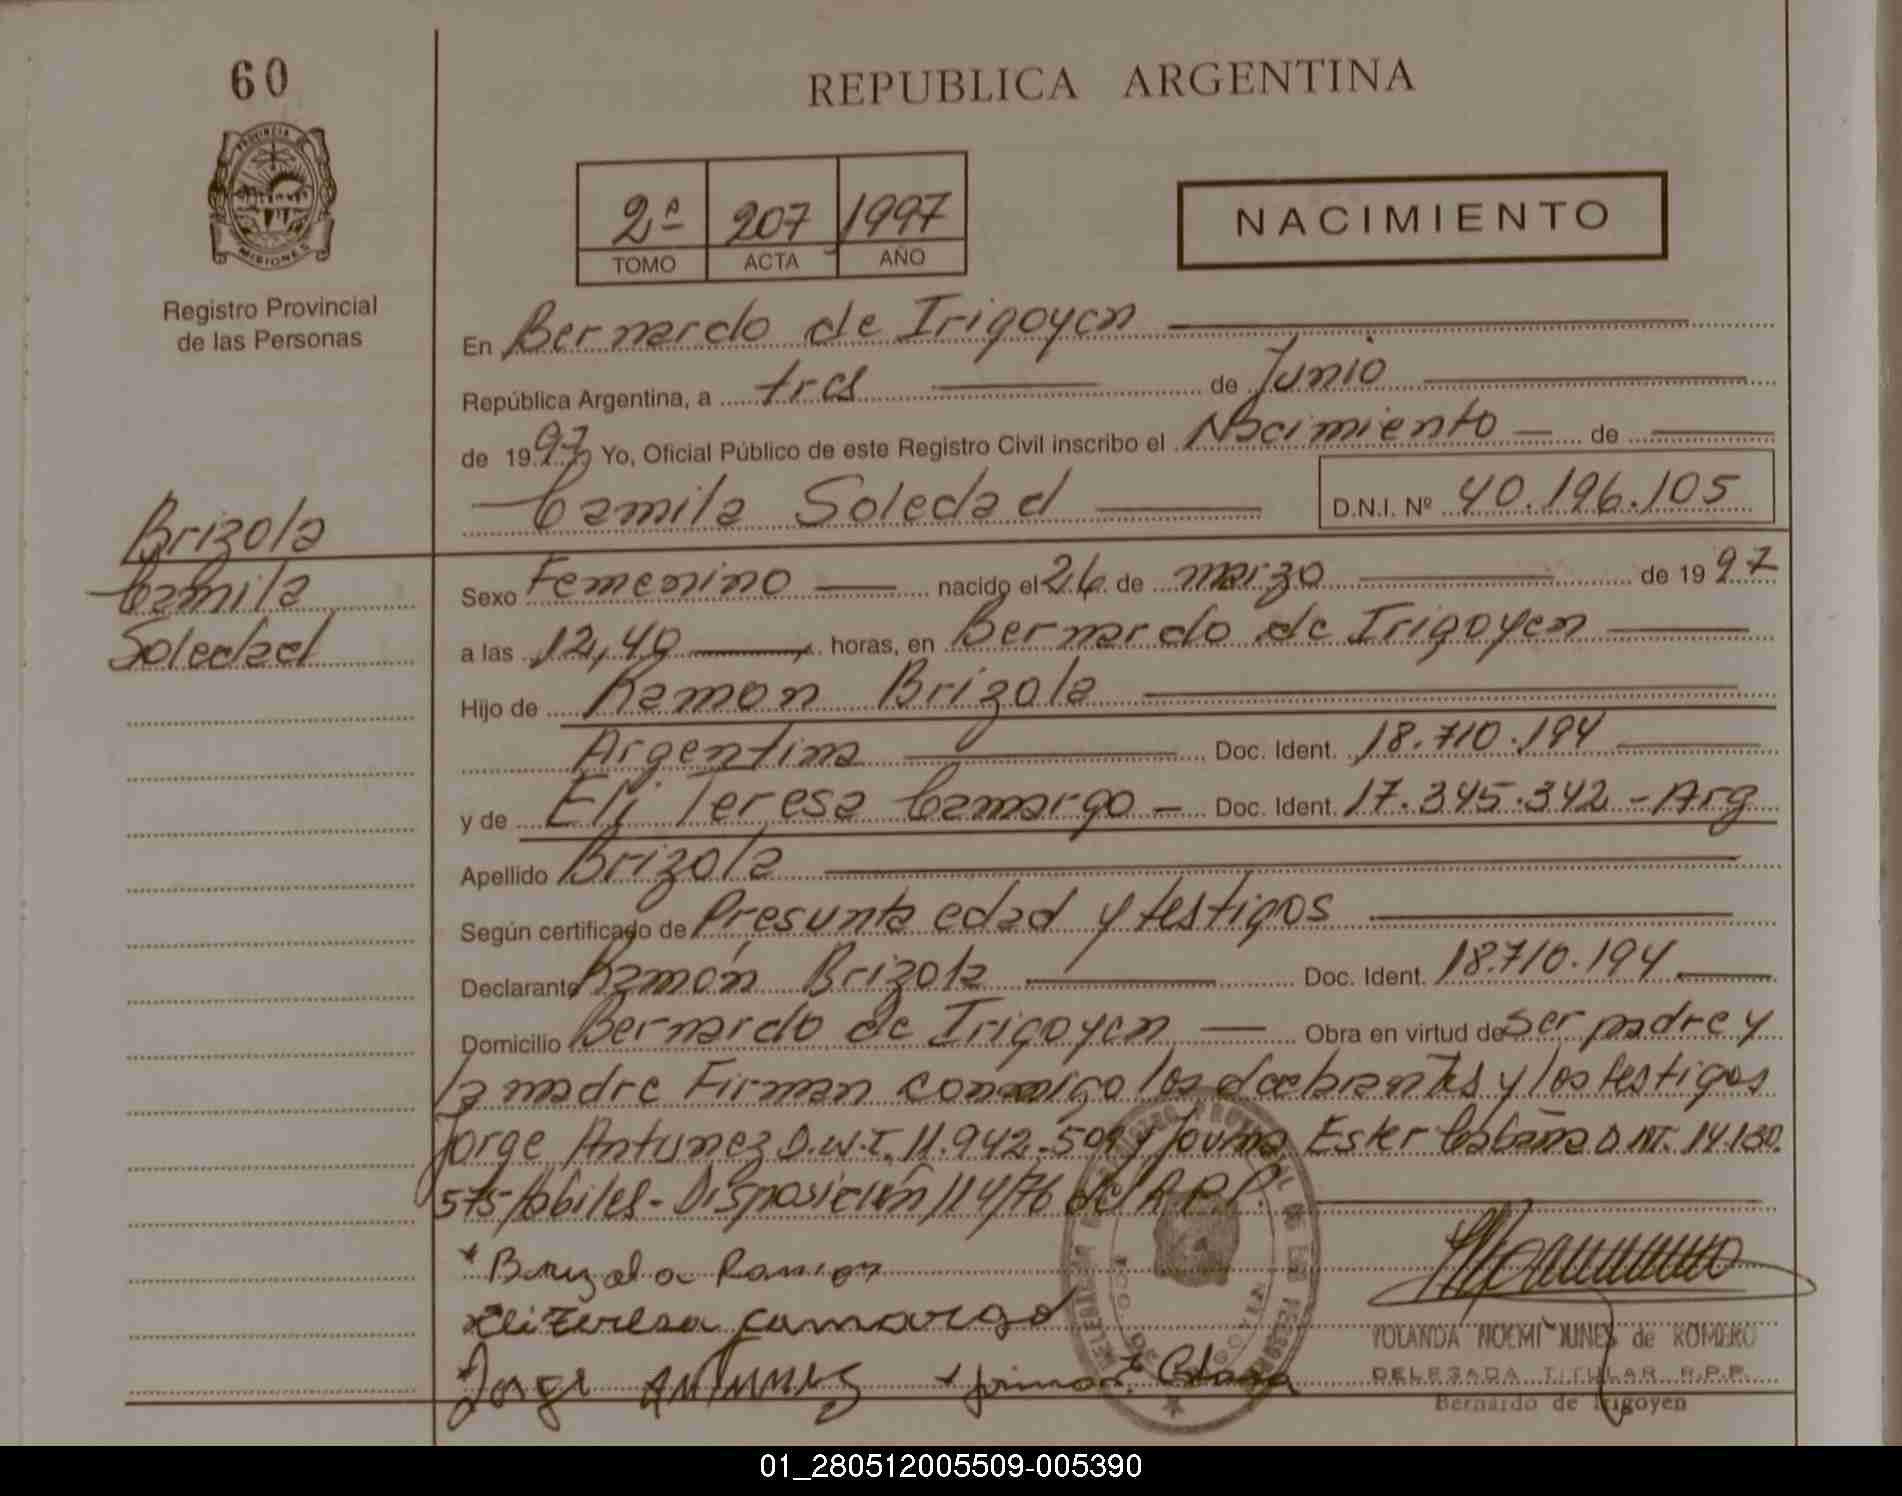 60
PROVINCIA DE
MISIONES
Registro Provincial
de las Personas
REPUBLICA ARGENTINA
2ª 207 1997
TOMO ACTA AÑO
NACIMIENTO
En Bernardo de Irigoyen
República Argentina, a tres de Junio
de 1997 Yo, Oficial Público de este Registro Civil inscribo el Nacimiento de
Camila Soledad D.N.I. Nº 40.196.105
Brizola
Camila
Soledad
Sexo Femenino nacido el 26 de marzo de 1997
a las 12,40 horas, en Bernardo de Irigoyen
Hijo de Ramon Brizola
Argentina Doc. Ident. 18.710.194
y de Eli Teresa Camargo Doc. Ident. 17.345.342 - Arg
Apellido Brizola
Según certificado de Presunta edad y testigos
Declarante Ramón Brizola Doc. Ident. 18.710.194
Domicilio Bernardo de Irigoyen Obra en virtud de ser padre y
la madre Firman conmigo los declarantes y los testigos
Jorge Antunez D.N.I. 11.942.509 y Ester D.NI. 14.130.
575 - Disposición 114/76 del R.P.P.
Ramon
Eli Teresa Camargo
Jorge Antunez
YOLANDA NOEMI JUNES de ROMERO
DELEGADA TITULAR R.P.P.
Bernardo de Irigoyen
01_280512005509-005390